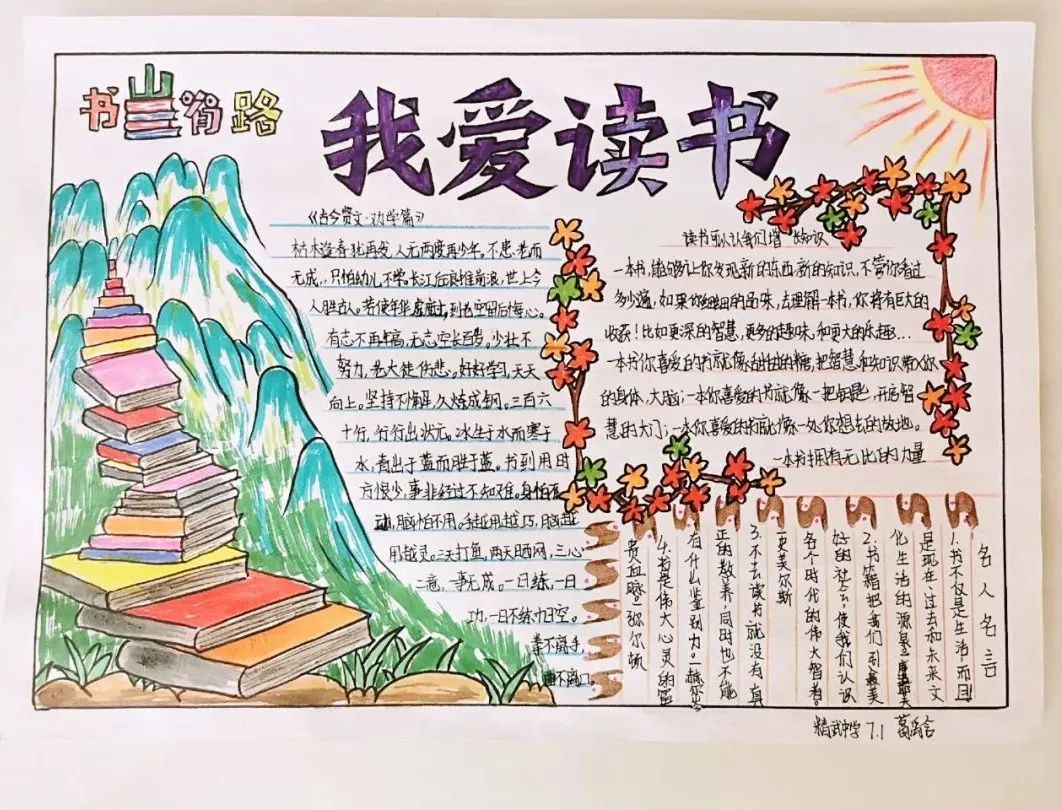 书山有路
我爱读书
《古今贤文·劝学篇》
枯木逢春犹再发,人无两度再少年。不患老而
无成,只怕幼儿不学。长江后浪推前浪,世上今
人胜古人。若使年华虚度过,到老空留后悔心。
有志不再年高,无志空长百岁。少壮不
努力,老大徒伤悲。好好学习,天天
向上。坚持不懈,久炼成钢。三百六
十行,行行出状元。冰生于水而寒于
水,青出于蓝而胜于蓝。书到用时
方恨少,事非经过不知难。身怕不
动,脑怕不用。手越用越巧,脑越
用越灵。三天打鱼,两天晒网,三心
二意,一事无成。一日练,一日
功,一日不练十日空。
拳不离手,
曲不离口。
读书可以让我们增长知识
一本书,能够让你发现新的东西,新的知识,不管你看过
多少遍,如果你细细的品味,去理解一本书,你将有巨大的
收获!比如更深的智慧,更多的趣味,和更大的乐趣...!
一本书你喜爱的书就像甜甜的糖,把智慧和知识带入你
的身体,大脑;一本你喜爱的书就像一把钥匙,开启智
慧的大门;一本你喜爱的书就像一处你想去的故地。
一本书拥有无比的力量
名人名言
1.书不仅是生活,而且
是现在、过去和未来文
化生活的源泉——库法耶夫
2.书籍把我们引入最美
好的社会,使我们认识
各个时代的伟大智者。
——史美尔斯
3.不去读书就没有真
正的教养,同时也不能
有什么鉴别力。——赫尔岑
4.书是伟大心灵的富
贵血脉——弥尔顿
精武中学 7.1 葛禹含